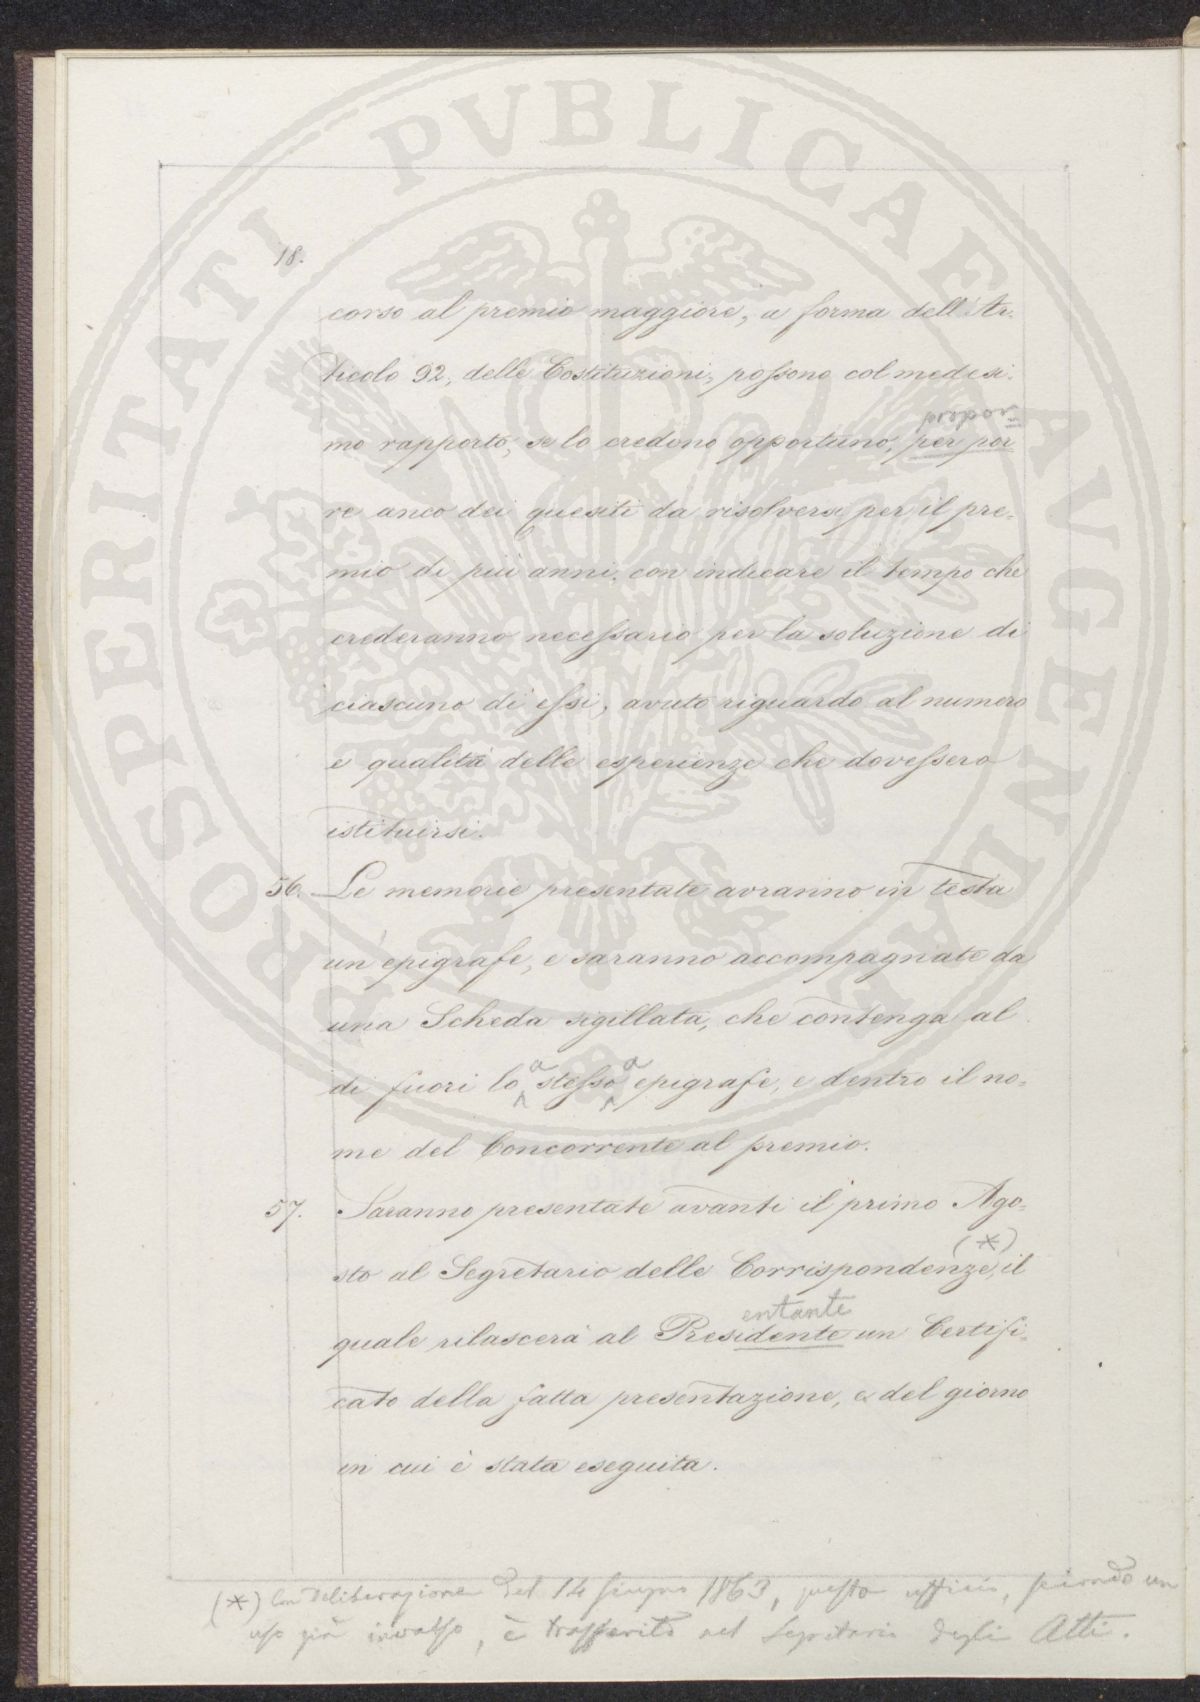 PROSPERITATI PVBLICAE AVGENDAE
18.
corso al premio maggiore, a forma dell'Ar-
ticolo 92, delle Costituzioni, possono col medesi-
mo rapporto, se lo credono opportuno, per por
re anco dei quesiti da risolversi per il pre-
mio di più anni, con indicare il tempo che
crederanno necessario per la soluzione di
ciascuno di essi, avuto riguardo al numero
e qualità delle esperienze che dovessero
istituirsi.
56. Le memorie presentate avranno in testa
un'epigrafe, e saranno accompagnate da
una Scheda sigillata, che contenga al
a a
di fuori lo stesso epigrafe, e dentro il no-
me del Concorrente al premio.
57. Saranno presentate avanti il primo Ago-
(*)
sto al Segretario delle Corrispondenze, il
entante
quale rilascerà al Presidente un Certifi-
cato della fatta presentazione, e del giorno
in cui è stata eseguita.
(*) Con Deliberazione del 14 Giugno 1863, questo ufficio, secondo un
uso già invalso, è trasferito nel Segretario degli Atti.